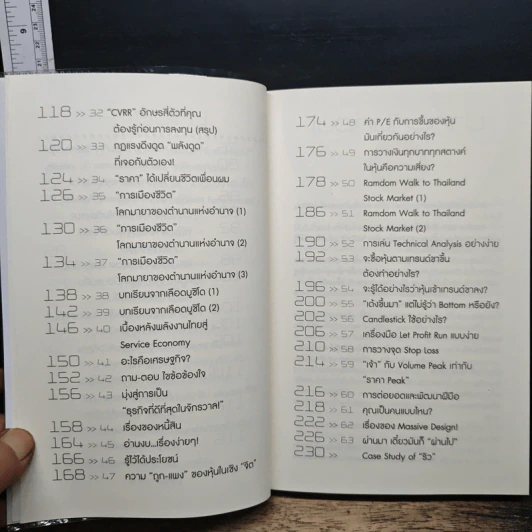 118 >> 32 "CVRR" อักษรสี่ตัวที่คุณ
ต้องรู้ก่อนการลงทุน (สรุป)
120 >> 33 กฎแรงดึงดูด "พลังดูด"
ที่เจอกับตัวเอง!
124 >> 34 "ราคา" ได้เปลี่ยนชีวิตเพื่อนผม
126 >> 35 "การเมืองชีวิต"
โลกมายาของตำนานแห่งอำนาจ (1)
130 >> 36 "การเมืองชีวิต"
โลกมายาของตำนานแห่งอำนาจ (2)
134 >> 37 "การเมืองชีวิต"
โลกมายาของตำนานแห่งอำนาจ (3)
138 >> 38 บทเรียนจากเลือดบูชิโด (1)
142 >> 39 บทเรียนจากเลือดบูชิโด (2)
146 >> 40 เบื้องหลังพลังงานไทยสู่
Service Economy
150 >> 41 อะไรคือเศรษฐกิจ?
152 >> 42 ถาม-ตอบ ไขข้อข้องใจ
156 >> 43 มุ่งสู่การเป็น
"ธุรกิจที่ดีที่สุดในจักรวาล!"
158 >> 44 เรื่องของหนี้สิน
164 >> 45 อ่านงบ...เรื่องง่ายๆ!
166 >> 46 รู้ไว้ได้ประโยชน์
168 >> 47 ความ "ถูก-แพง" ของหุ้นในเชิง "จิต"
174 >> 48 ค่า P/E กับการขึ้นของหุ้น
มันเกี่ยวกันอย่างไร?
176 >> 49 การวางเงินทุกบาททุกสตางค์
ในหุ้นคือความเสี่ยง?
178 >> 50 Ramdom Walk to Thailand
Stock Market (1)
186 >> 51 Ramdom Walk to Thailand
Stock Market (2)
190 >> 52 การเล่น Technical Analysis อย่างง่าย
192 >> 53 จะซื้อหุ้นตามเทรนด์ขาขึ้น
ต้องทำอย่างไร?
196 >> 54 จะรู้ได้อย่างไรว่าหุ้นเข้าเทรนด์ขาลง?
200 >> 55 "เด้งขึ้นมา" แต่ไม่รู้ว่า Bottom หรือยัง?
202 >> 56 Candlestick ใช้อย่างไร?
206 >> 57 เครื่องมือ Let Profit Run แบบง่าย
210 >> 58 การวางจุด Stop Loss
214 >> 59 "เจ้า" กับ Volume Peak เท่ากับ
"ราคา Peak"
216 >> 60 การต่อยอดและพัฒนาฝีมือ
218 >> 61 คุณเป็นคนแบบไหน?
222 >> 62 เรื่องของ Massive Design!
226 >> 63 ผ่านมา เดี๋ยวมันก็ "ผ่านไป"
230 >> Case Study of "ซิว"